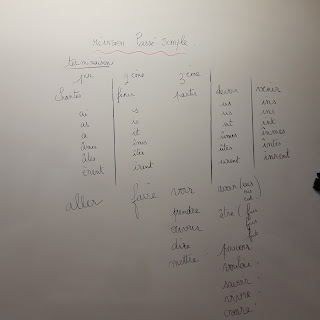 Passé simple
terminaison
1er 2ème 3ème
chanter finir partir devoir venir
ai is us ins
as is us ins
a it ut int
âmes îmes ûmes înmes
âtes îtes ûtes întes
èrent irent urent inrent
aller faire voir avoir (eus
eus
eut)
prendre être (fus
fus
fut
écrire
dire pouvoir
mettre vouloir
savoir
vivre
croire